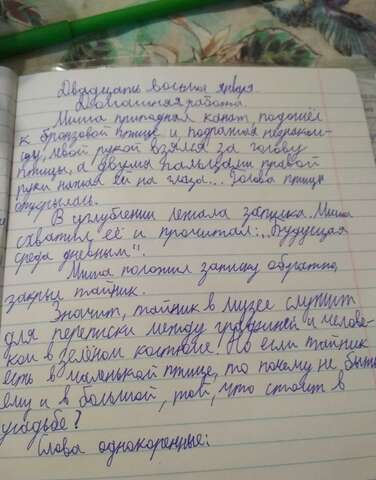 Двадцать восьмое января
Домашняя работа.
Миша приподнял канат, подошёл
к бронзовой птице и, подражая незнаком-
цу, левой рукой взялся за голову
птицы, а двумя пальцами правой
руки нажал ей на глаза... Голова птицы
открылась.
В углублении лежала записка. Миша
схватил её и прочитал: „Будущая
среда дневным".
Миша положил записку обратно,
закрыл тайник.
Значит, тайник в музее служит
для переписки между графиней и челове-
ком в зелёном костюме. Но если тайник
есть в маленькой птице, то почему не быть
ему и в большой, той, что стоит в
усадьбе?
Слова однокоренные: